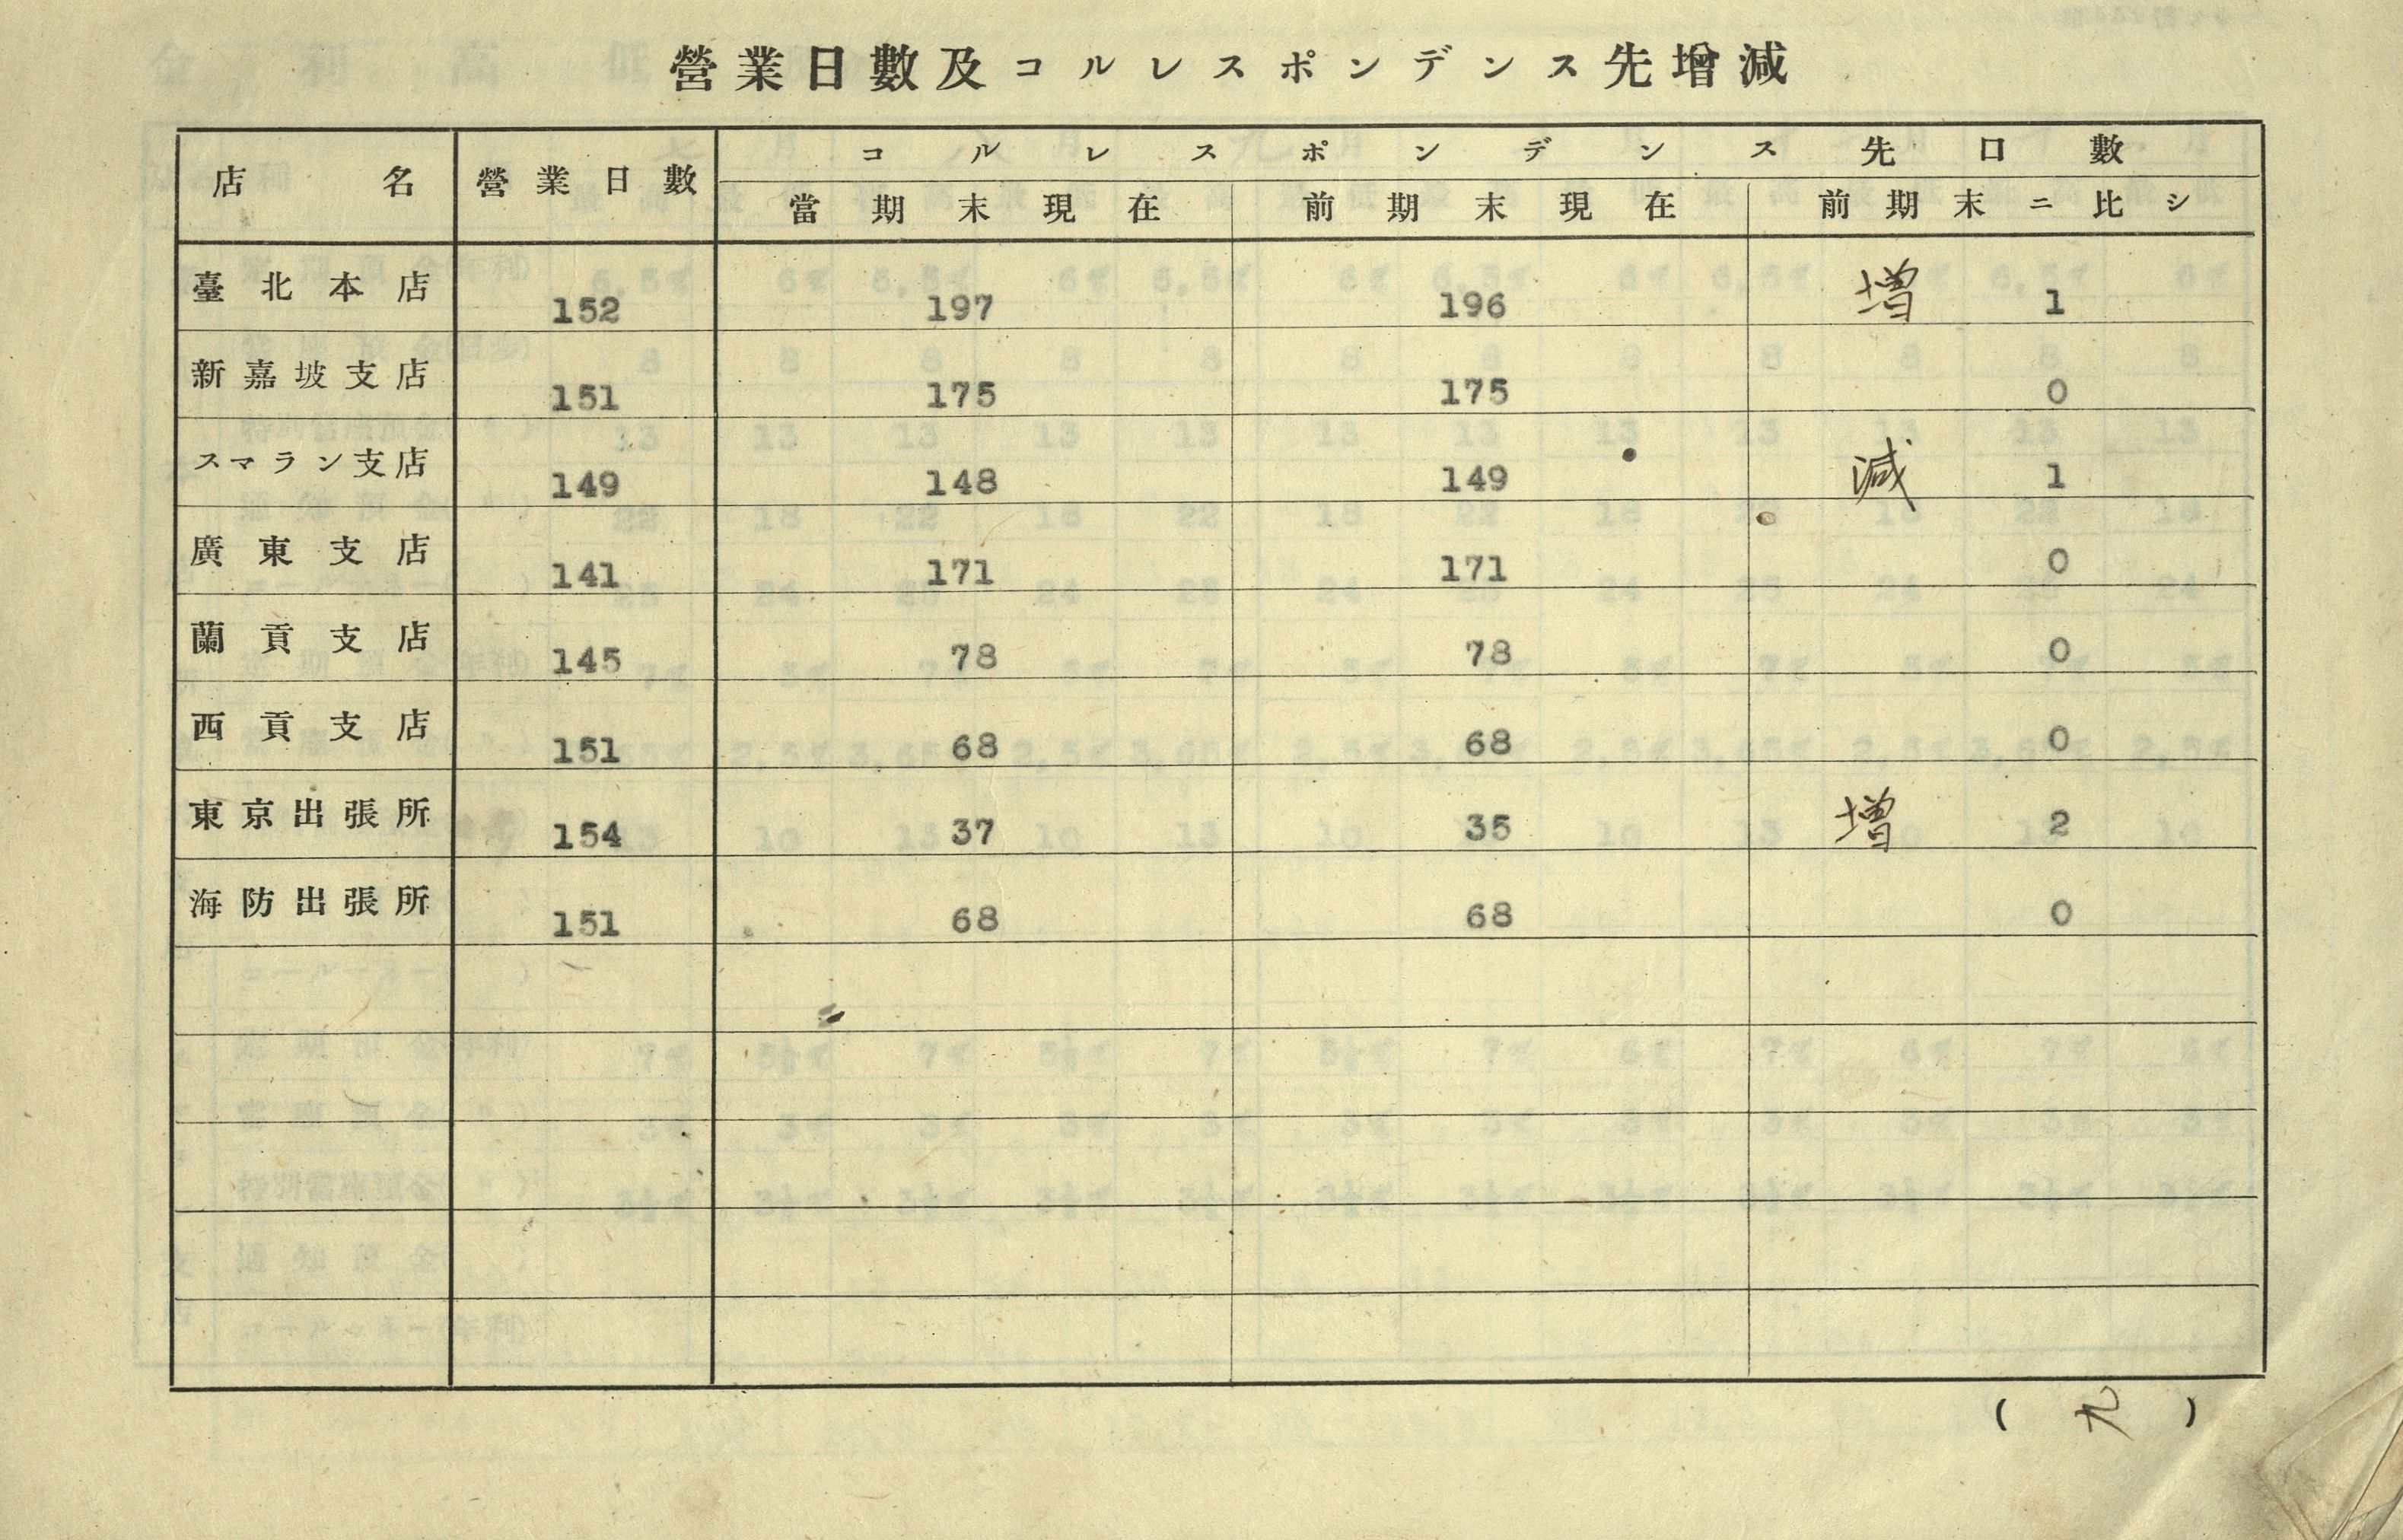 營業日數及コルレスポンデンス先增減
店名 營業日數 コルレスポンデンス先口數
當期末現在 前期末現在 前期末ニ比シ
臺北本店 152 197 196 増 1
新嘉坡支店 151 175 175 0
スマラン支店 149 148 149 減 1
廣東支店 141 171 171 0
蘭貢支店 145 78 78 0
西貢支店 151 68 68 0
東京出張所 154 37 35 増 2
海防出張所 151 68 68 0
(九)